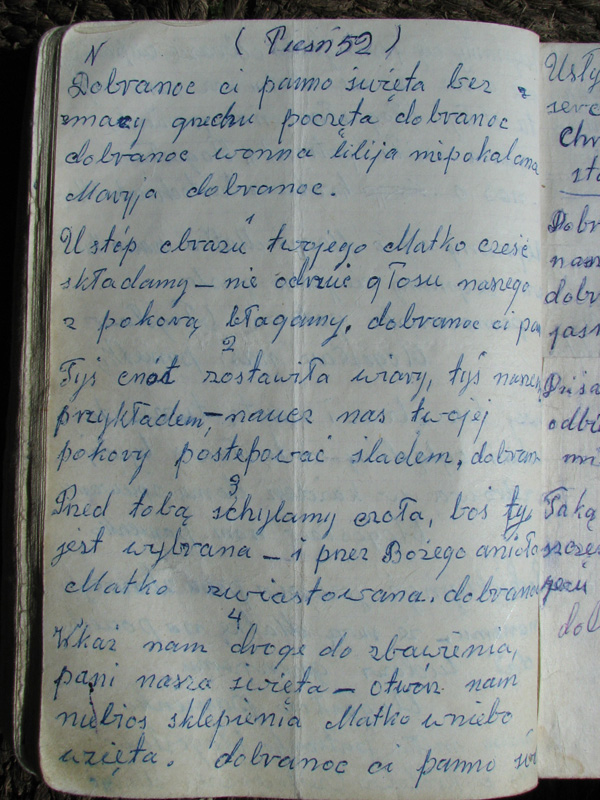 N
( Pieśń 52 )
Dobranoc ci panno święta bez
zmazy grzechu poczęta dobranoc
dobranoc wonna lilija niepokalana
Maryja dobranoc.
1
Ustóp obrazu twojego Matko cześć
składamy – nie odrzuć głosu naszego
z pokorą błagamy, dobranoc ci pan
2
Tyś cnót zostawiła wiary, tyś naszem
przykładem, – naucz nas twojej
pokory postępować śladem, dobran
3
Pred tobą schylamy czoła, boś ty
jest wybrana – i przez Bożego anioła
Matko zwiastowana. dobrana
4
Wkaż nam drogę do zbawienia,
pani nasza święta – otwórz nam
niebios sklepienia Matko wniebo
wzięta. dobranoc ci panno świ
Usły
serc
Chr
sta
Dobr
nasz
dobr
jasn
Dziś
odbi
mi
Taką
szczę
dob